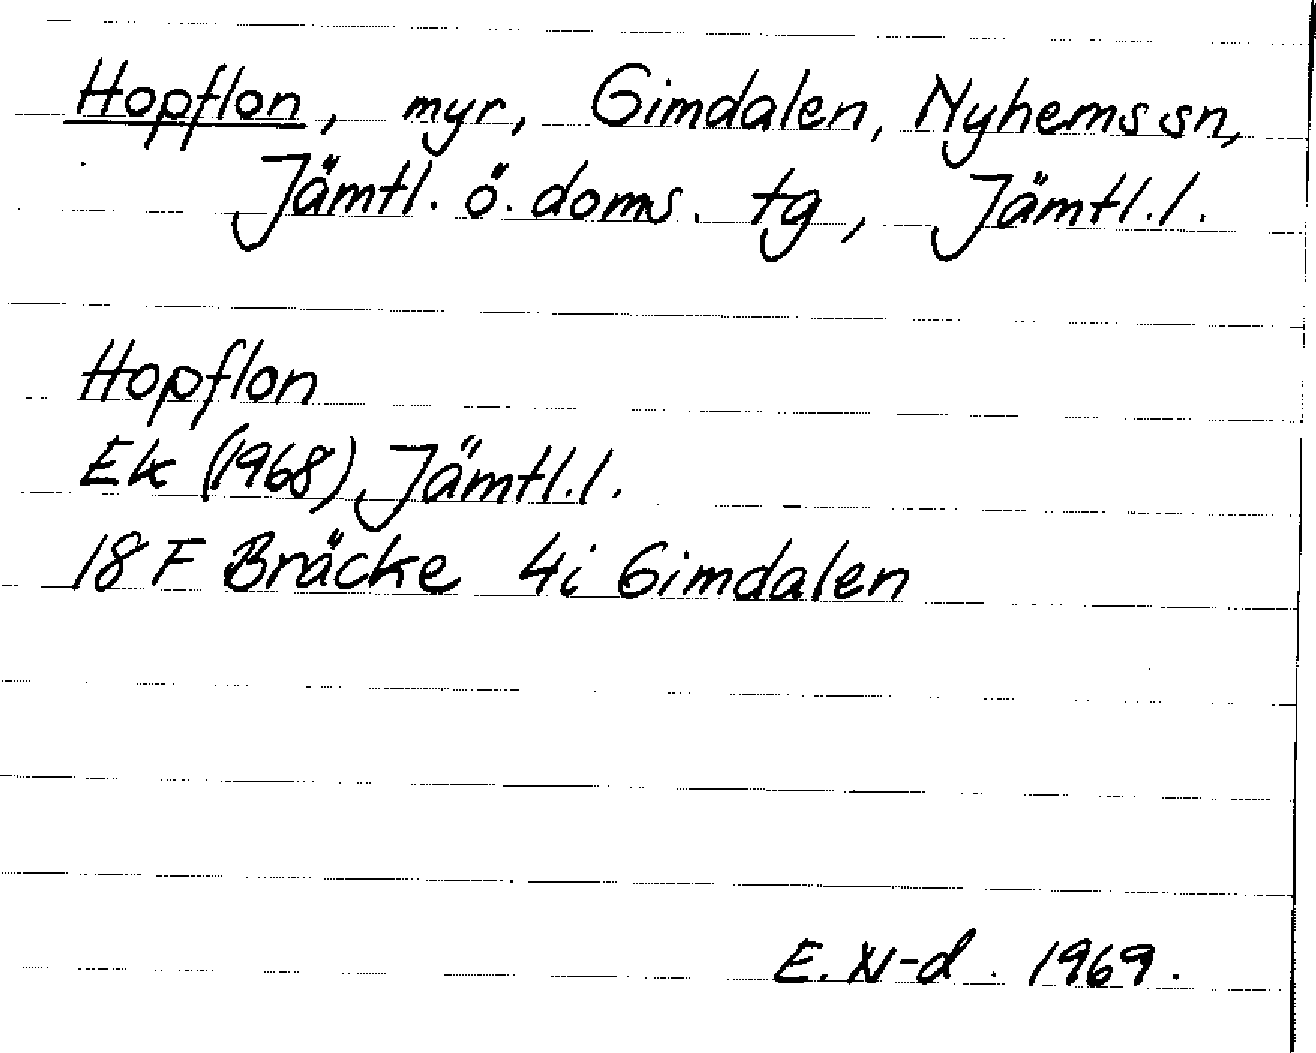 Hopflon, myr, Gimdalen, Nyhems sn,
Jämtl. ö. doms. tg, Jämtl. l.
Hopflon
Ek (1968) Jämtl. l.
18 F Bräcke 4i Gimdalen
E. N-d. 1969.